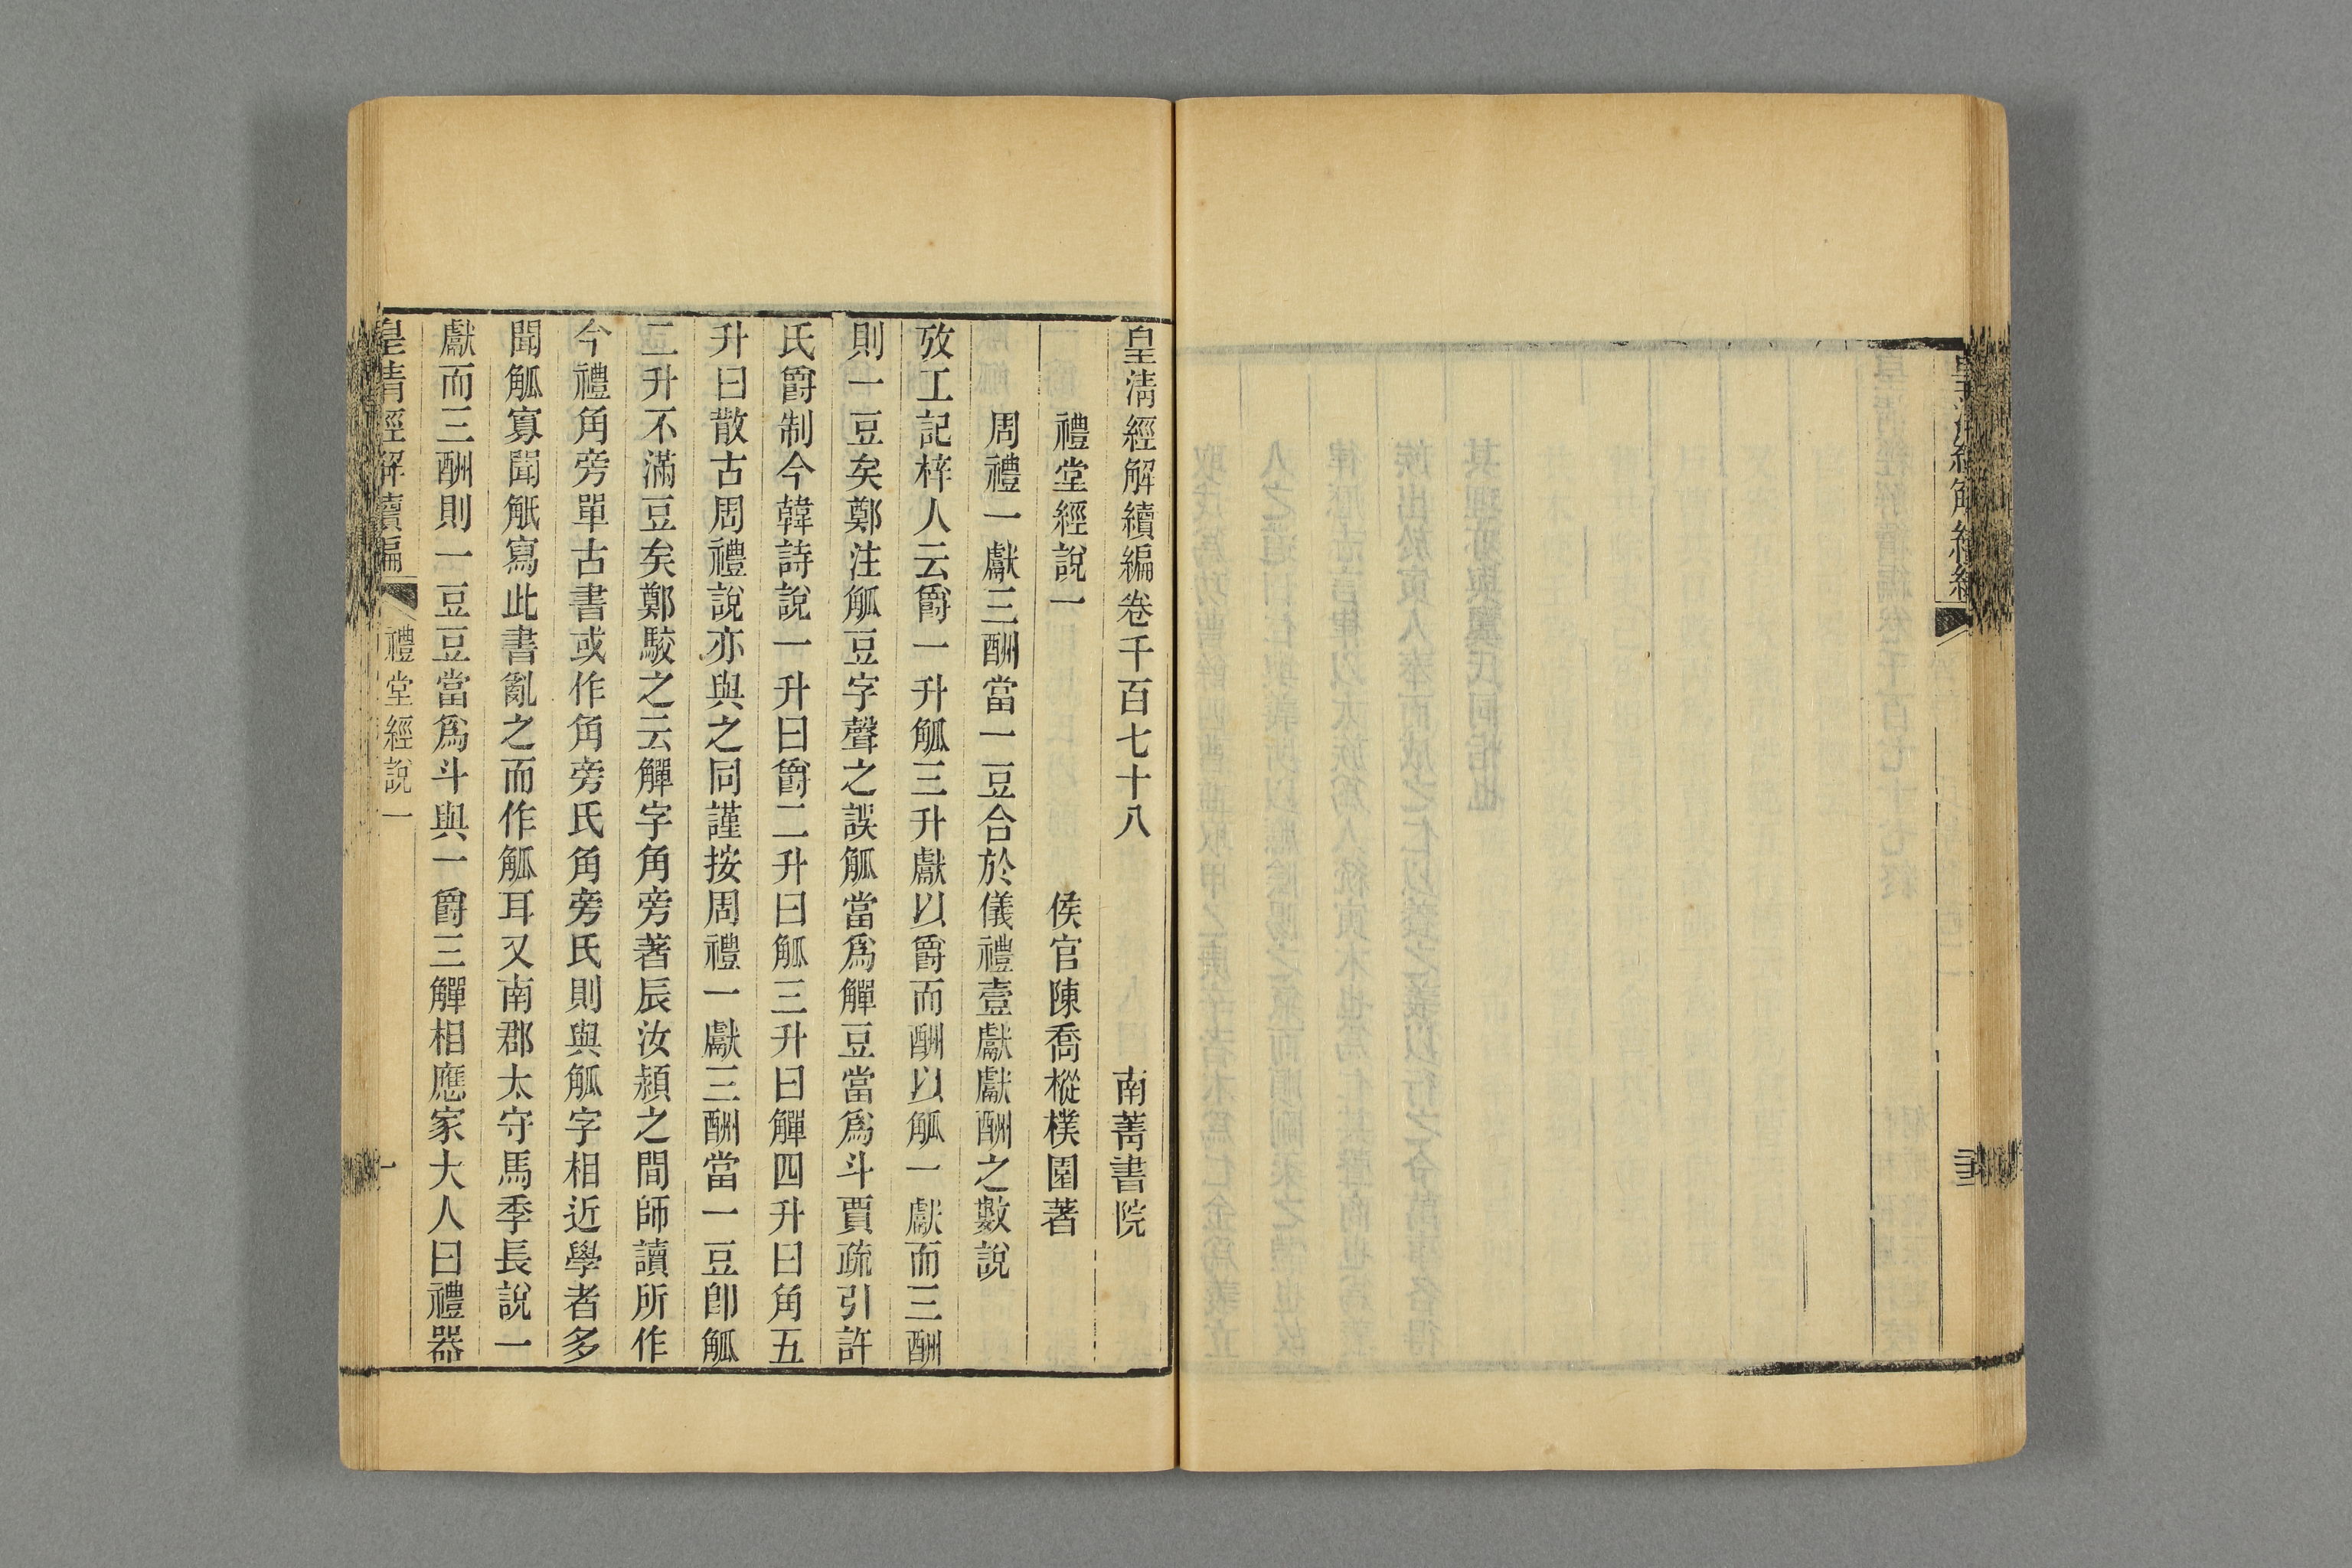 皇淸經解續編卷千百七十八　南菁書院
禮堂經說一　侯官陳喬樅樸園著
周禮一獻三酬當一豆合於儀禮壹獻獻酬之數說
攷工記梓人云爵一升觚三升獻以爵而酬以觚一獻而三酬
則一豆矣鄭注觚豆字聲之誤觚當爲觶豆當爲斗賈疏引許
氏爵制今韓詩說一升曰爵二升曰觚三升曰觶四升曰角五
升曰散古周禮說亦與之同謹按周禮一獻三酬當一豆卽觚
二升不滿豆矣鄭駮之云觶字角旁著辰汝潁之間師讀所作
今禮角旁單古書或作角旁氏角旁氏則與觚字相近學者多
聞觚寡聞觗寫此書亂之而作觚耳又南郡太守馬季長說一
獻而三酬則一豆豆當爲斗與一爵三觶相應家大人曰禮器
皇淸經解續編　禮堂經說一　一